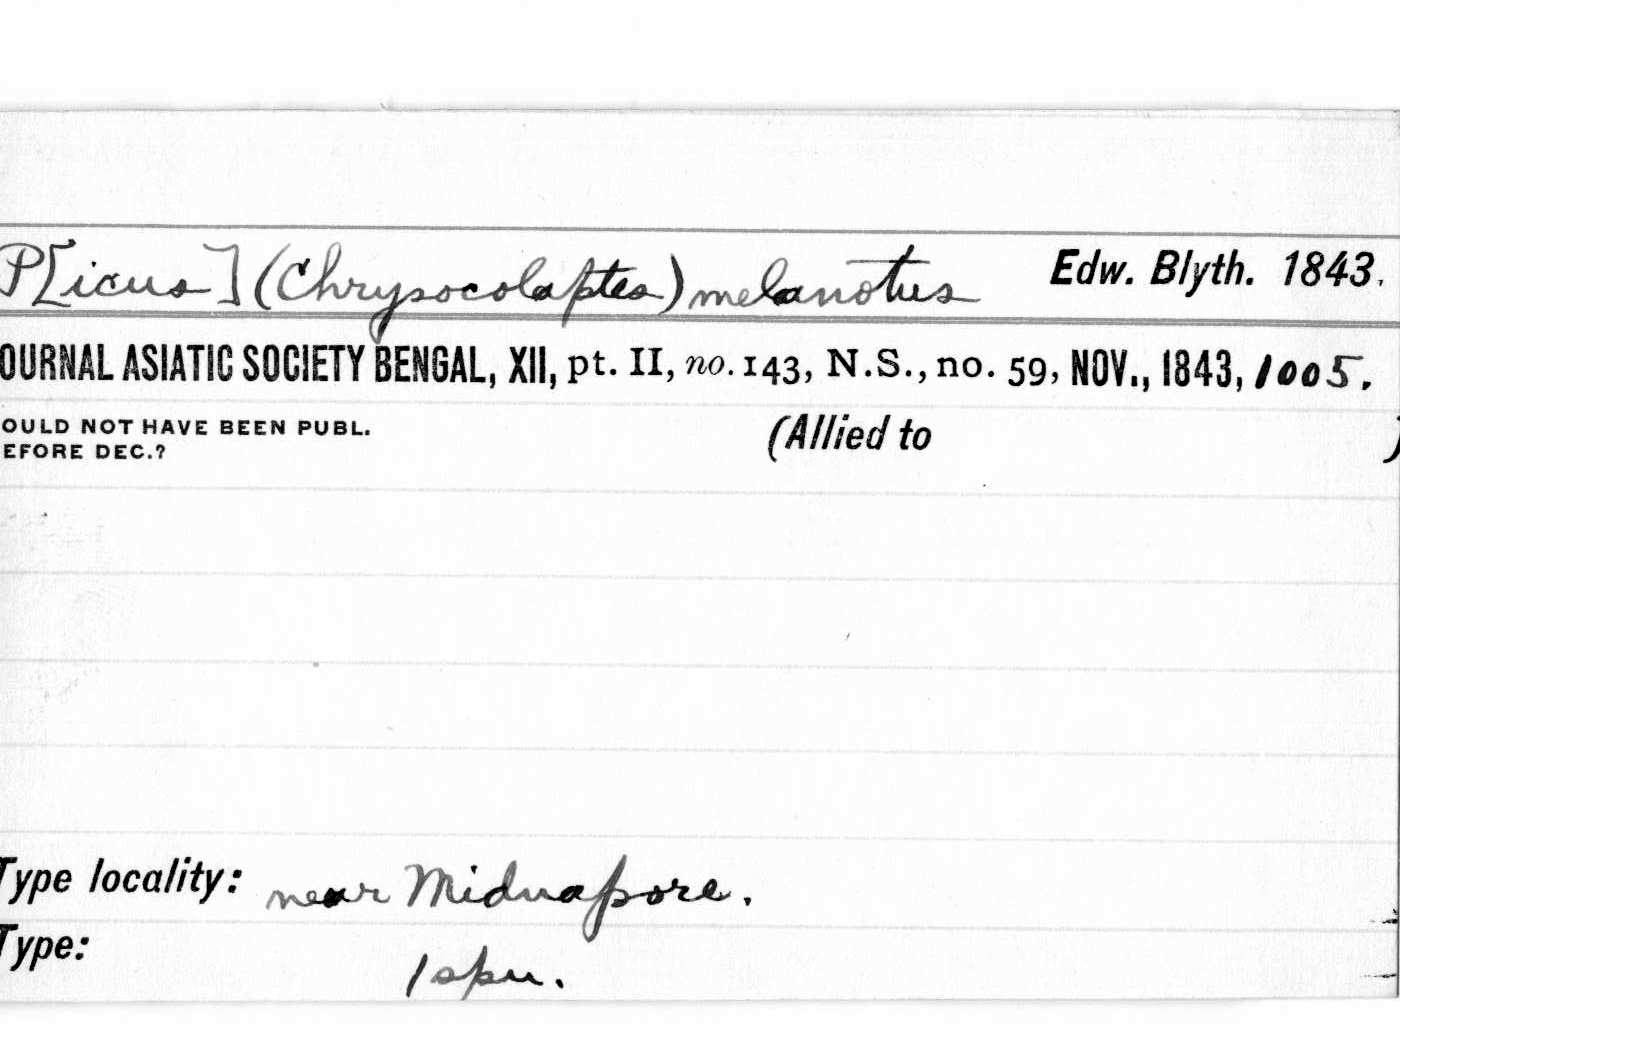 P[icus] (Chrysocolaptes) melanotus Edw. Blyth. 1843.
OURNAL ASIATIC SOCIETY BENGAL, XII, pt. II, no. 143, N.S., no. 59, NOV., 1843, 1005.
OULD NOT HAVE BEEN PUBL. (Allied to )
EFORE DEC.?
Type locality: near Midnapore.
Type: 1 spn.